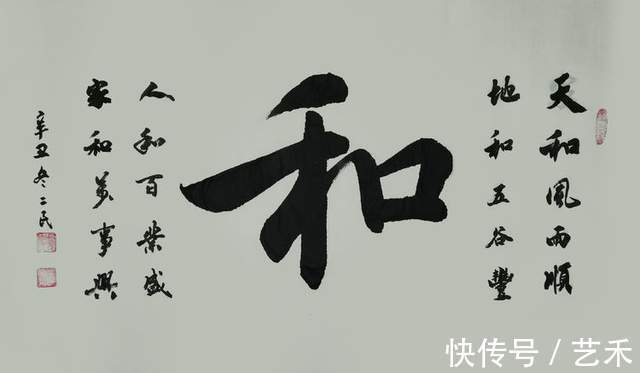 天和風雨順
地和五谷豐
和
人和百業盛
家和萬事興
辛丑冬二民
快传号／艺禾